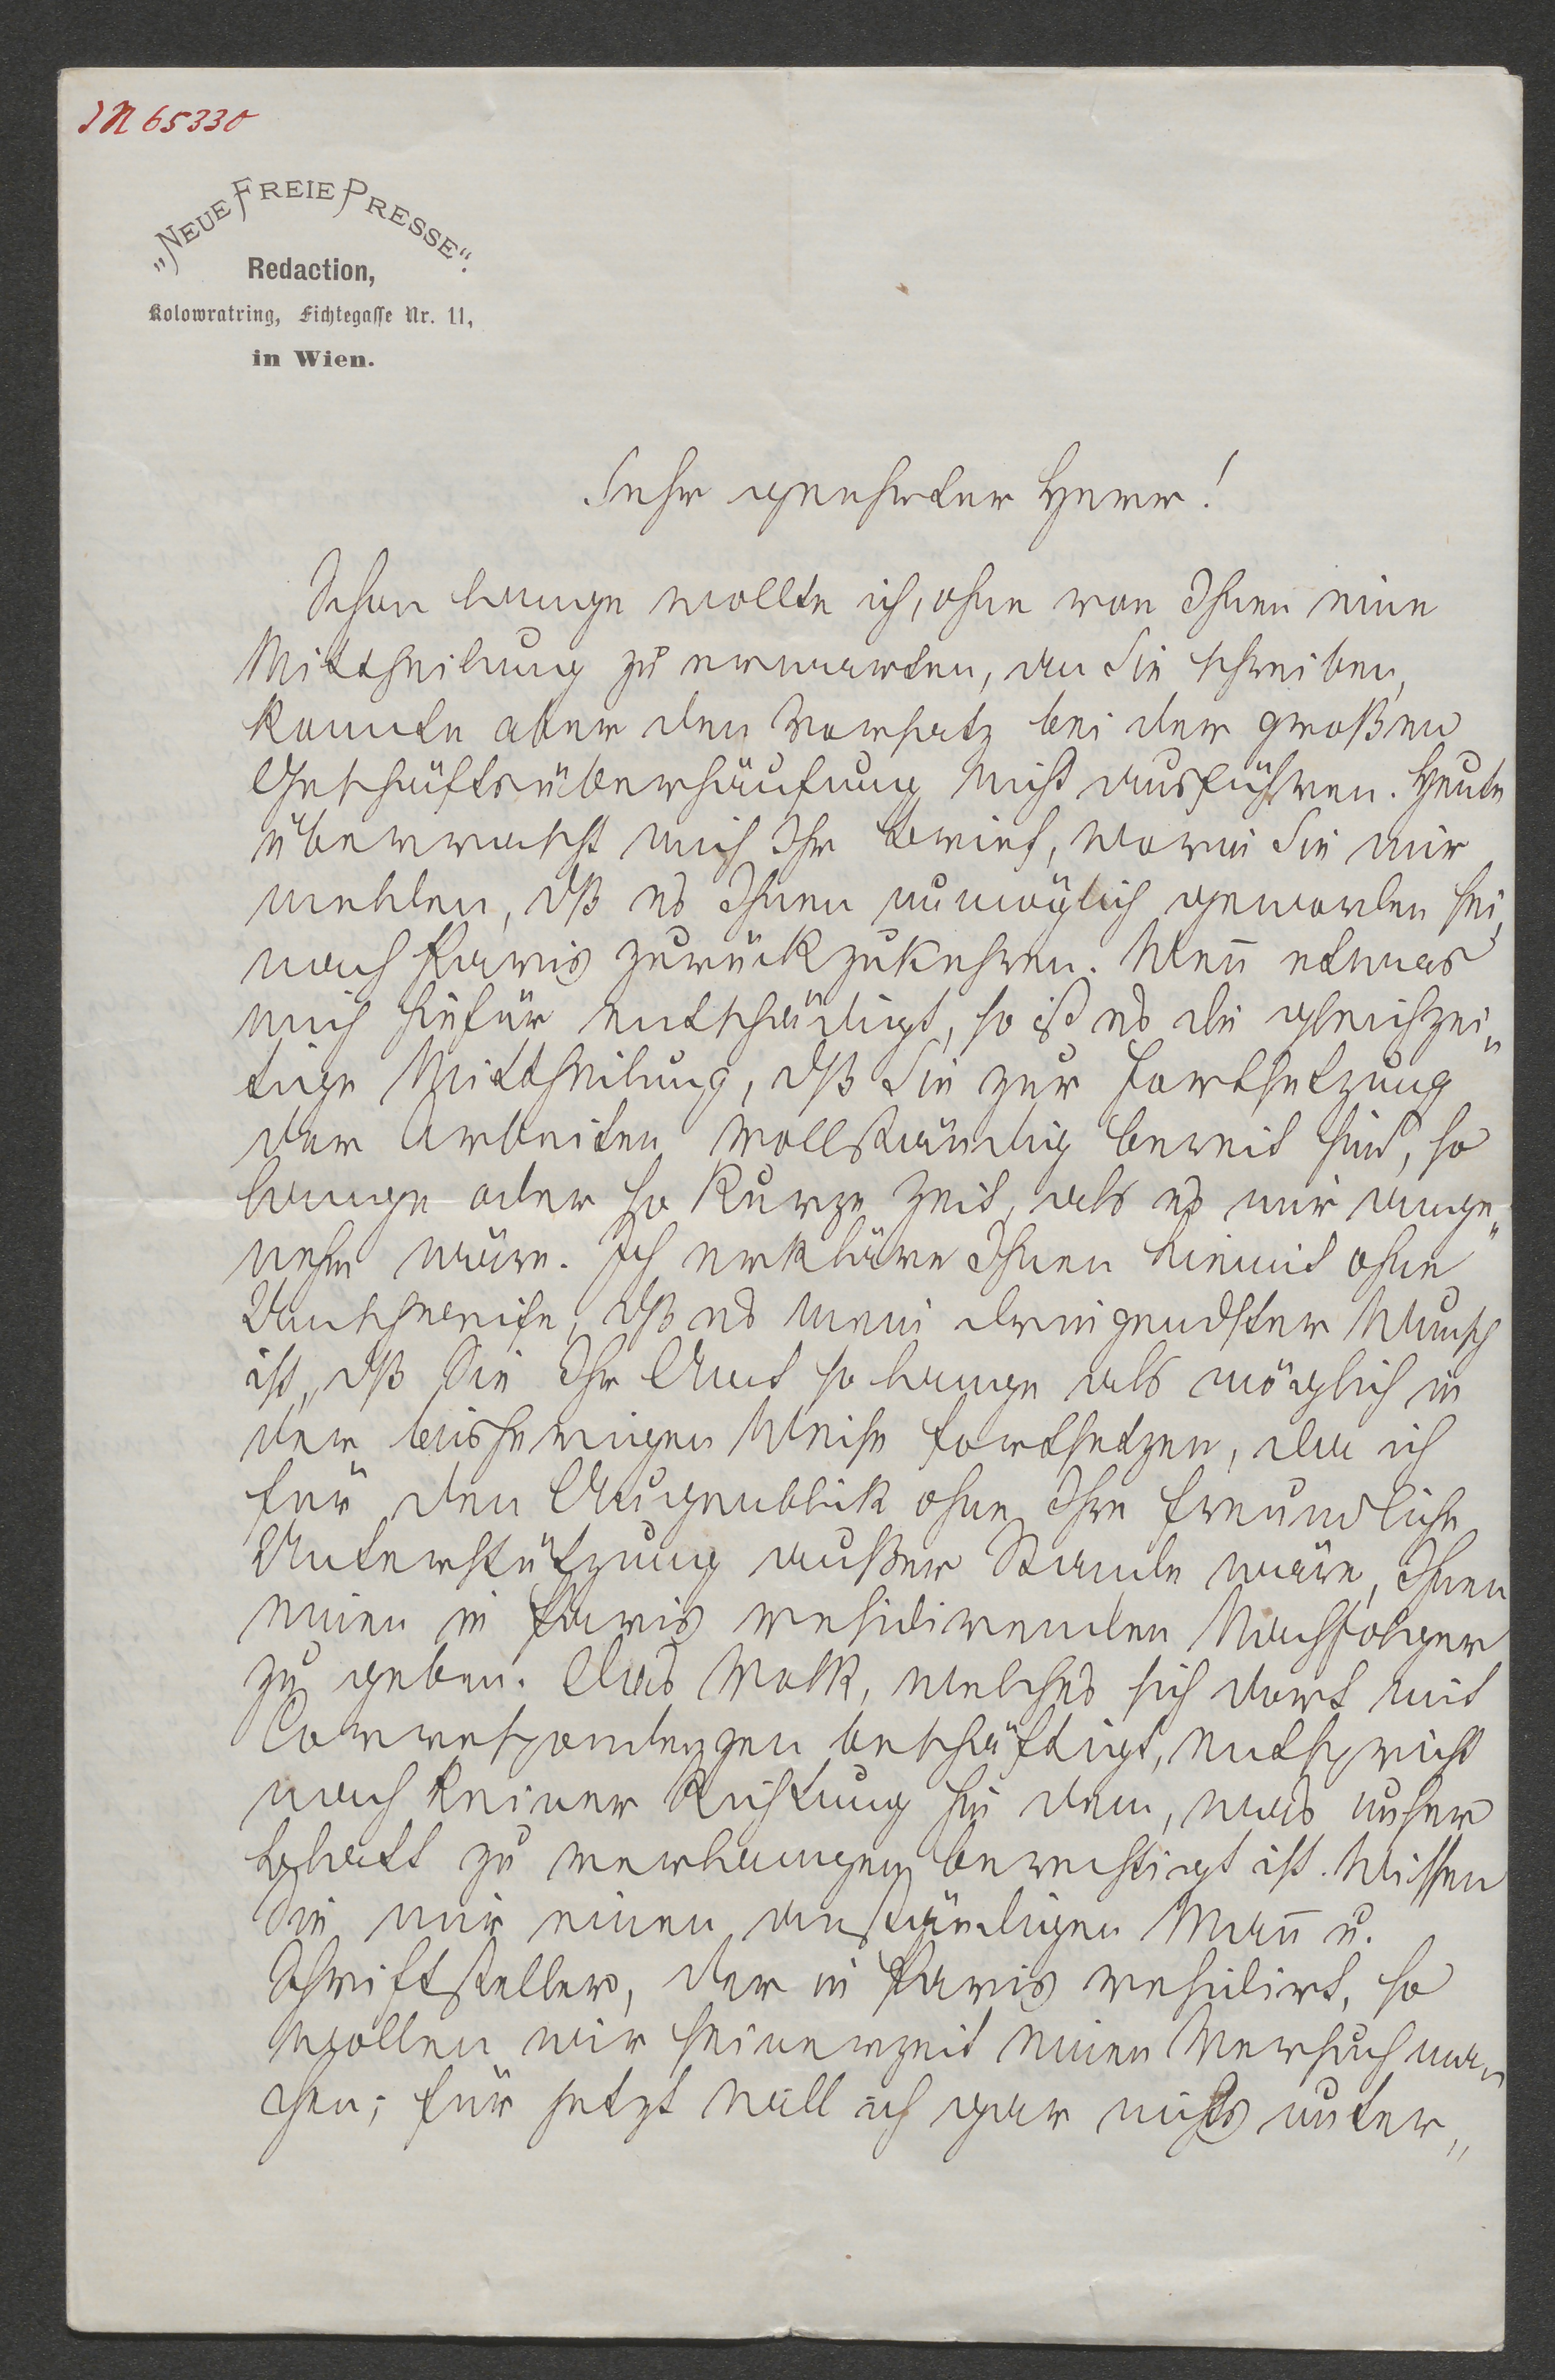 IN 65330
„NEUE FREIE PRESSE“.
Redaction,
Kolowratring, Fichtegasse Nr. 11,
in Wien.
Sehr geehrter Herr!
Schon lange wollte ich, ohne von Ihnen eine
Mittheilung zu erwarten, an Sie schreiben,
konnte aber den Vorsatz bei der großen
Geschäftsüberhäufung nicht ausführen. Heute
überrascht mich Ihr Brief, worin Sie mir
melden, dß es Ihnen unmöglich geworden sei,
nach Paris zurückzukehren. Wenn etwas
mich hiefür entschädigt, so ist es die gleichzei„
tige Mittheilung, dß Sie zur Fortsetzung
der Arbeiten vollständig bereit sind, so
lange oder so kurze Zeit, als es mir ange„
nehm wäre. Ich erkläre Ihnen hiemit ohne
Umschweife, dß es mein dringendster Wunsch
ist, dß Sie Ihr Amt so lange als möglich in
der bisherigen Weise fortsetzen, da ich
für den Augenblick ohne Ihre freundliche
Unterstützung außer Stande wäre, Ihnen
einen in Paris residirenden Nachfolger
zu geben. Das Volk, welches sich dort mit
Correspondenzen beschäftigt, entspricht
nach keiner Richtung hin dem, was unser
Blatt zu verlangen berechtigt ist. Wissen
Sie mir einen anständigen Mann u.
Schriftsteller, der in Paris residirt, so
wollen wir seinerzeit einen Versuch ma„
chen; für jetzt will ich gar nichts unter„